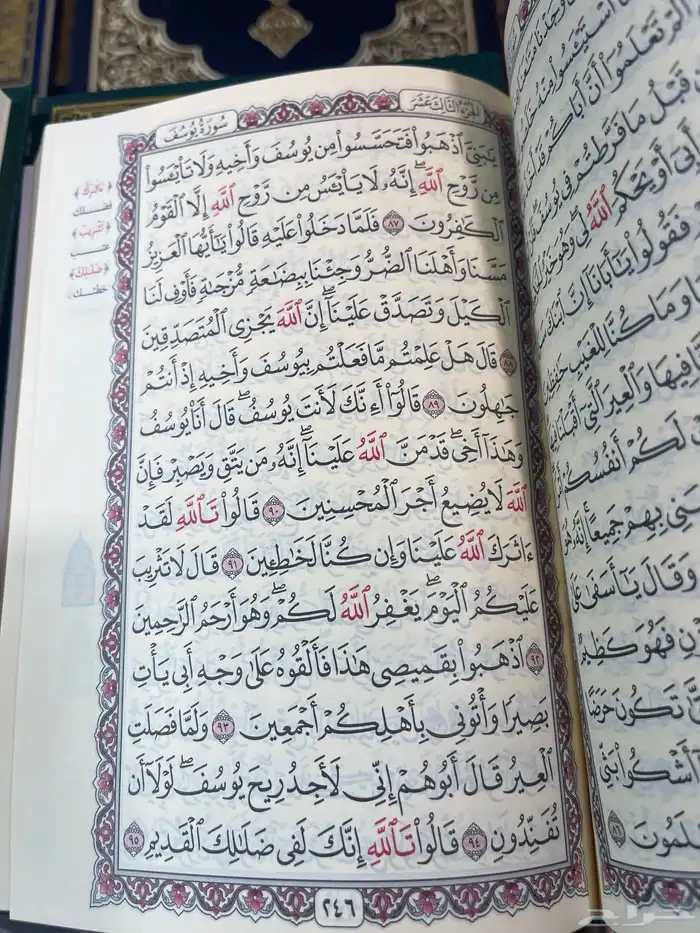 الجزء الثالث عشر
سورة يوسف
يَٰبَنِىَّ ٱذْهَبُوا۟ فَتَحَسَّسُوا۟ مِن يُوسُفَ وَأَخِيهِ وَلَا تَا۟يْـَٔسُوا۟
مِن رَّوْحِ ٱللَّهِ ۖ إِنَّهُۥ لَا يَا۟يْـَٔسُ مِن رَّوْحِ ٱللَّهِ إِلَّا ٱلْقَوْمُ
ٱلْكَٰفِرُونَ ٨٧ فَلَمَّا دَخَلُوا۟ عَلَيْهِ قَالُوا۟ يَٰٓأَيُّهَا ٱلْعَزِيزُ
مَسَّنَا وَأَهْلَنَا ٱلضُّرُّ وَجِئْنَا بِبِضَٰعَةٍ مُّزْجَىٰةٍ فَأَوْفِ لَنَا
ٱلْكَيْلَ وَتَصَدَّقْ عَلَيْنَآ ۖ إِنَّ ٱللَّهَ يَجْزِى ٱلْمُتَصَدِّقِينَ
٨٨ قَالَ هَلْ عَلِمْتُم مَّا فَعَلْتُم بِيُوسُفَ وَأَخِيهِ إِذْ أَنتُمْ
جَٰهِلُونَ ٨٩ قَالُوٓا۟ أَءِنَّكَ لَأَنتَ يُوسُفُ ۖ قَالَ أَنَا۠ يُوسُفُ
وَهَٰذَآ أَخِى ۖ قَدْ مَنَّ ٱللَّهُ عَلَيْنَآ ۖ إِنَّهُۥ مَن يَتَّقِ وَيَصْبِرْ فَإِنَّ
ٱللَّهَ لَا يُضِيعُ أَجْرَ ٱلْمُحْسِنِينَ ٩٠ قَالُوا۟ تَٱللَّهِ لَقَدْ
ءَاثَرَكَ ٱللَّهُ عَلَيْنَا وَإِن كُنَّا لَخَٰطِـِٔينَ ٩١ قَالَ لَا تَثْرِيبَ
عَلَيْكُمُ ٱلْيَوْمَ ۖ يَغْفِرُ ٱللَّهُ لَكُمْ ۖ وَهُوَ أَرْحَمُ ٱلرَّٰحِمِينَ
٩٢ ٱذْهَبُوا۟ بِقَمِيصِى هَٰذَا فَأَلْقُوهُ عَلَىٰ وَجْهِ أَبِى يَأْتِ
بَصِيرًا وَأْتُونِى بِأَهْلِكُمْ أَجْمَعِينَ ٩٣ وَلَمَّا فَصَلَتِ
ٱلْعِيرُ قَالَ أَبُوهُمْ إِنِّى لَأَجِدُ رِيحَ يُوسُفَ ۖ لَوْلَآ أَن
تُفَنِّدُونِ ٩٤ قَالُوا۟ تَٱللَّهِ إِنَّكَ لَفِى ضَلَٰلِكَ ٱلْقَدِيمِ ٩٥
٢٤٦
﴿ءَاثَرَكَ﴾
فضلك
﴿تَثْرِيبَ﴾
عتب
﴿ضَلَٰلِكَ﴾
خطئك
تَعْلَمُوٓا۟ أَنَّ أَبَاكُمْ قَدْ
قَبْلُ مَا فَرَّطتُمْ فِى يُوسُفَ
أَوْ يَحْكُمَ ٱللَّهُ لِى وَهُوَ
فَقُولُوا۟ يَٰٓأَبَانَآ إِنَّ ٱبْنَكَ
وَمَا كُنَّا لِلْغَيْبِ
فِيهَا وَٱلْعِيرَ ٱلَّتِىٓ
لَكُمْ أَنفُسُكُمْ
بِهِمْ جَمِيعًا
وَقَالَ يَٰٓأَسَفَىٰ
فَهُوَ كَظِيمٌ
تَكُونَ حَرَضًا
أَشْكُوا۟ بَثِّى
٨٦